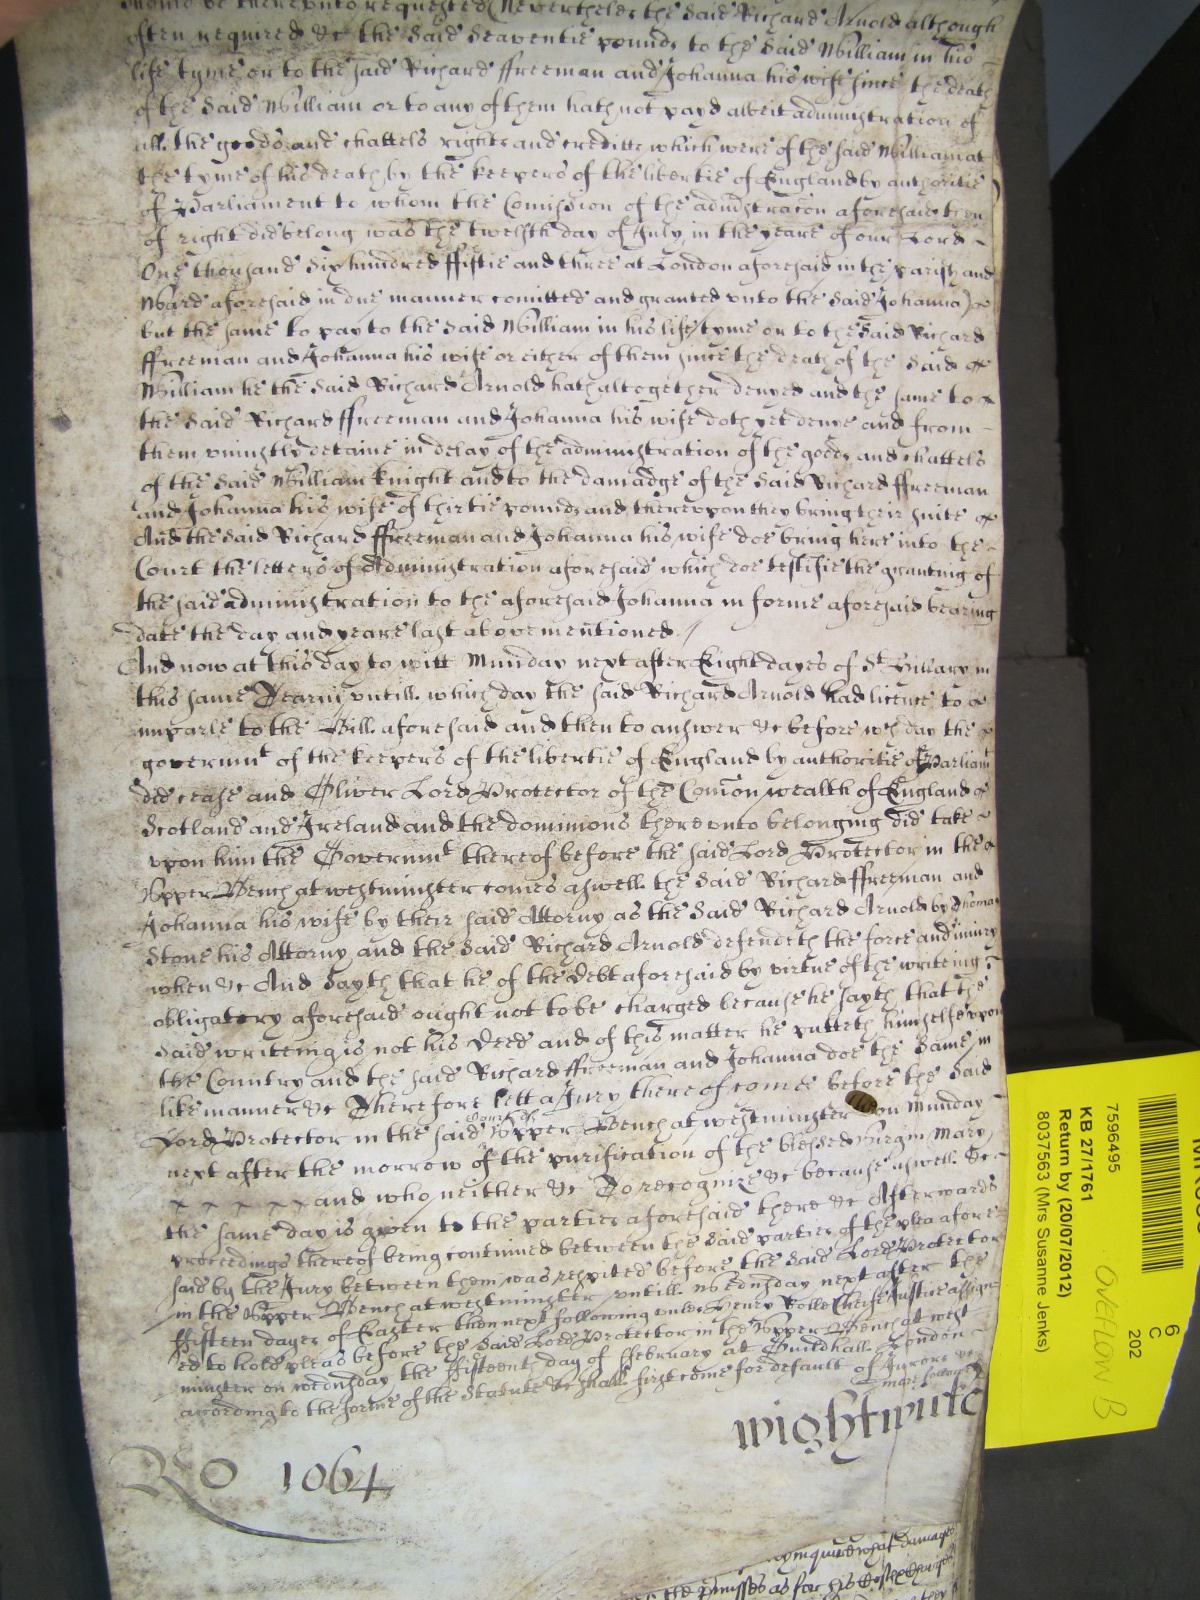 should be thereunto requested Neverthelesse the said Richard Arnold although
often required &c the said Seaventie pounds to the said William in his
life tyme or to the said Richard ffreeman and Johanna his wife since the death
of the said William or to any of them hath not payd albeit administration of
all the goods and chattels rights and creditts which were of the said William at
the tyme of his death by the keepers of the libertie of England by authoritie
of Parliament to whom the Comission of the administracon aforesaid then
of right did belong was the twelfth day of July in the yeare of our Lord
One thousand six hundred ffiftie and three at London aforesaid in the parish and
Ward aforesaid in due manner comitted and granted unto the said Johanna)
but the same to pay to the said William in his life tyme or to the said Richard
ffreeman and Johanna his wife or either of them since the death of the said
William he the said Richard Arnold hath altogether denyed and the same to
the said Richard ffreeman and Johanna his wife doth yet denye and from
them uniustly detaine in delay of the administration of the goods and chattels
of the said William Knight and to the damadge of the said Richard ffreeman
and Johanna his wife of thirtie pounds and thereupon they bring their suite
And the said Richard ffreeman and Johanna his wife doe bring here into the
Court the letters of Administration aforesaid which doe testifie the granting of
the said administration to the aforesaid Johanna in forme aforesaid bearing
date the day and yeare last above mentioned
And now at this day to witt Munday next after Eight dayes of St Hillary in
this same Tearm untill which day the said Richard Arnold had licence to
imparle to the Bill aforesaid and then to answer &c before wch day the
governmt of the keepers of the libertie of England by authoritie of Parliamt
did cease and Oliver Lord Protector of the Comon wealth of England
Scotland and Ireland and the dominions thereunto belonging did take
upon him the Governmt thereof before the said Lord Protector in the
Upper Bench at westminster comes aswell the said Richard ffreeman and
Johanna his wife by their said Attorny as the said Richard Arnold by Thomas
Stone his Attorny and the said Richard Arnold defendeth the force and iniury
when &c And sayth that he of the Debt aforesaid by virtue of the writeing
obligatory aforesaid ought not to be charged because he sayth that the
said writeing is not his Deed and of this matter he putteth himselfe upon
the Country and the said Richard ffreeman and Johanna doe the same in
like manner &c Therefore lett a Jury thereof come before the said
Lord Protector in the said Upper Bench at westminster on Munday
next after the morrow of the purification of the blessed virgin Mary
x x x x x and who neither &c To recognize &c because aswell &c
the same day is given to the parties aforesaid there &c Afterwards
proceedings thereof being continued between the said parties of the plea afore
said by the Jury between them was respited before the said Lord Protector
in the Upper Bench at westminster untill Wednsday next after the
ffifteen dayes of Easter then next following unles Henry Rolle Cheife Justice assign
ed to hold pleas before the said Lord Protector in the Upper Bench at west
minster on wednsday the ffifteenth day of ffebruary at Guildhall London
according to the forme of the Statute &c shall first come for default of Jurors
wightwick
Ro 1064
7596495
KB 27/1761
Return by (20/07/2012)
8037563 (Mrs Susanne Jenks)
6
C
202
OVEFLOW B